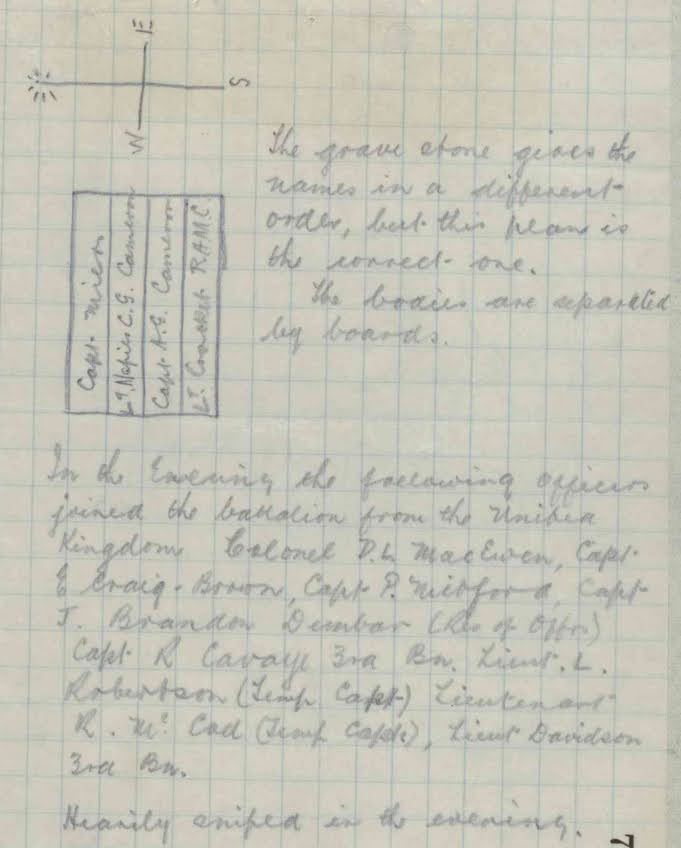 E
S
W
Capt. Miers
Lt. Napier C.G. Cameron
Capt A.G. Cameron
Lt. Crocket R.A.M.C.
The grave stone gives the
names in a different
order, but this plan is
the correct one.
The bodies are separated
by boards.
In the Evening the following Officers
joined the battalion from the United
Kingdom Colonel D.L. MacEwen, Capt.
E Craig-Brown, Capt P. Mitford, Capt
J. Brandon Dunbar (Res of Offrs)
Capt R Cavaye 3rd Bn. Lieut. L.
Robertson (Temp Capt) Lieutenant
R. Mc. Cad (Temp Capt), Lieut Davidson
3rd Bn.
Heavily sniped in the evening.
7